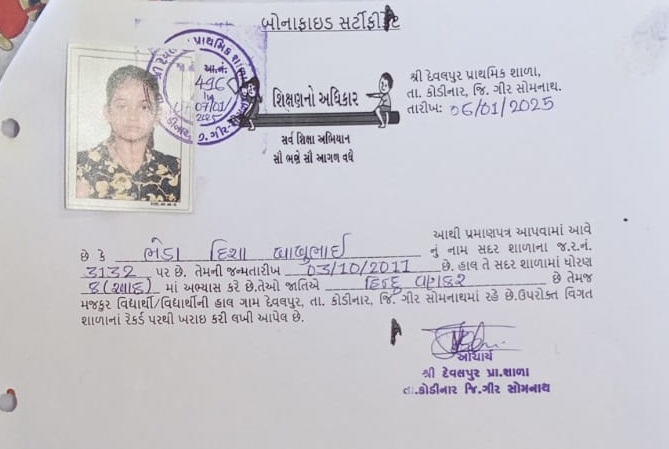 બોનાફાઇડ સર્ટીફીકેટ
શ્રી દેવલપુર પ્રાથમિક શાળા,
તા. કોડીનાર, જિ. ગીર સોમનાથ.
તારીખઃ 06/01/2025
પ્રાથમિક શાળા
આ.નં.
496
07/01
2025
શિક્ષણનો અધિકાર
સર્વ શિક્ષા અભિયાન
સૌ ભણે સૌ આગળ વધે
આથી પ્રમાણપત્ર આપવામાં આવે
છે કે ભેડા દિશા બાબુભાઈ નું નામ સદર શાળાના જ.ર.નં.
3132 પર છે. તેમની જન્મતારીખ 03/10/2011 છે. હાલ તે સદર શાળામાં ધોરણ
8 (આઠ) માં અભ્યાસ કરે છે.તેઓ જાતિએ હિન્દુ વણકર છે તેમજ
મજકુર વિદ્યાર્થી/વિદ્યાર્થીની હાલ ગામ દેવલપુર, તા. કોડીનાર, જિ. ગીર સોમનાથમાં રહે છે.ઉપરોક્ત વિગત
શાળાનાં રેકર્ડ પરથી ખરાઇ કરી લખી આપેલ છે.
આચાર્ય
શ્રી દેવલપુર પ્રા.શાળા
તા.કોડીનાર જિ.ગીર સોમનાથ